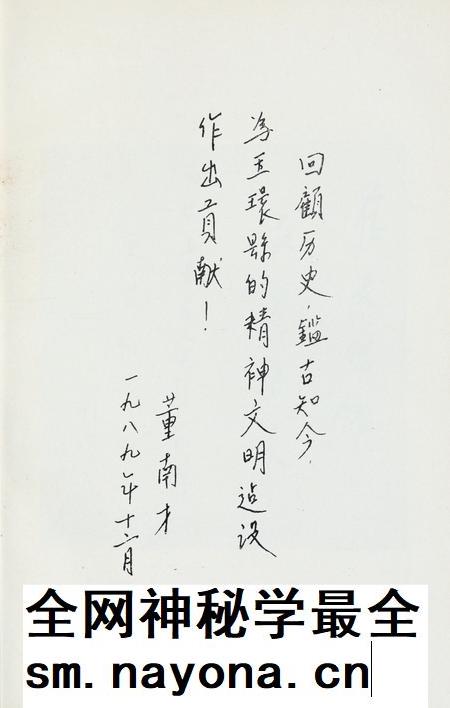 回顧历史，鑑古知今，
为玉环县的精神文明建设
作出贡献！
董南才
一九八九年十二月
全网神秘学最全
sm.nayona.cn